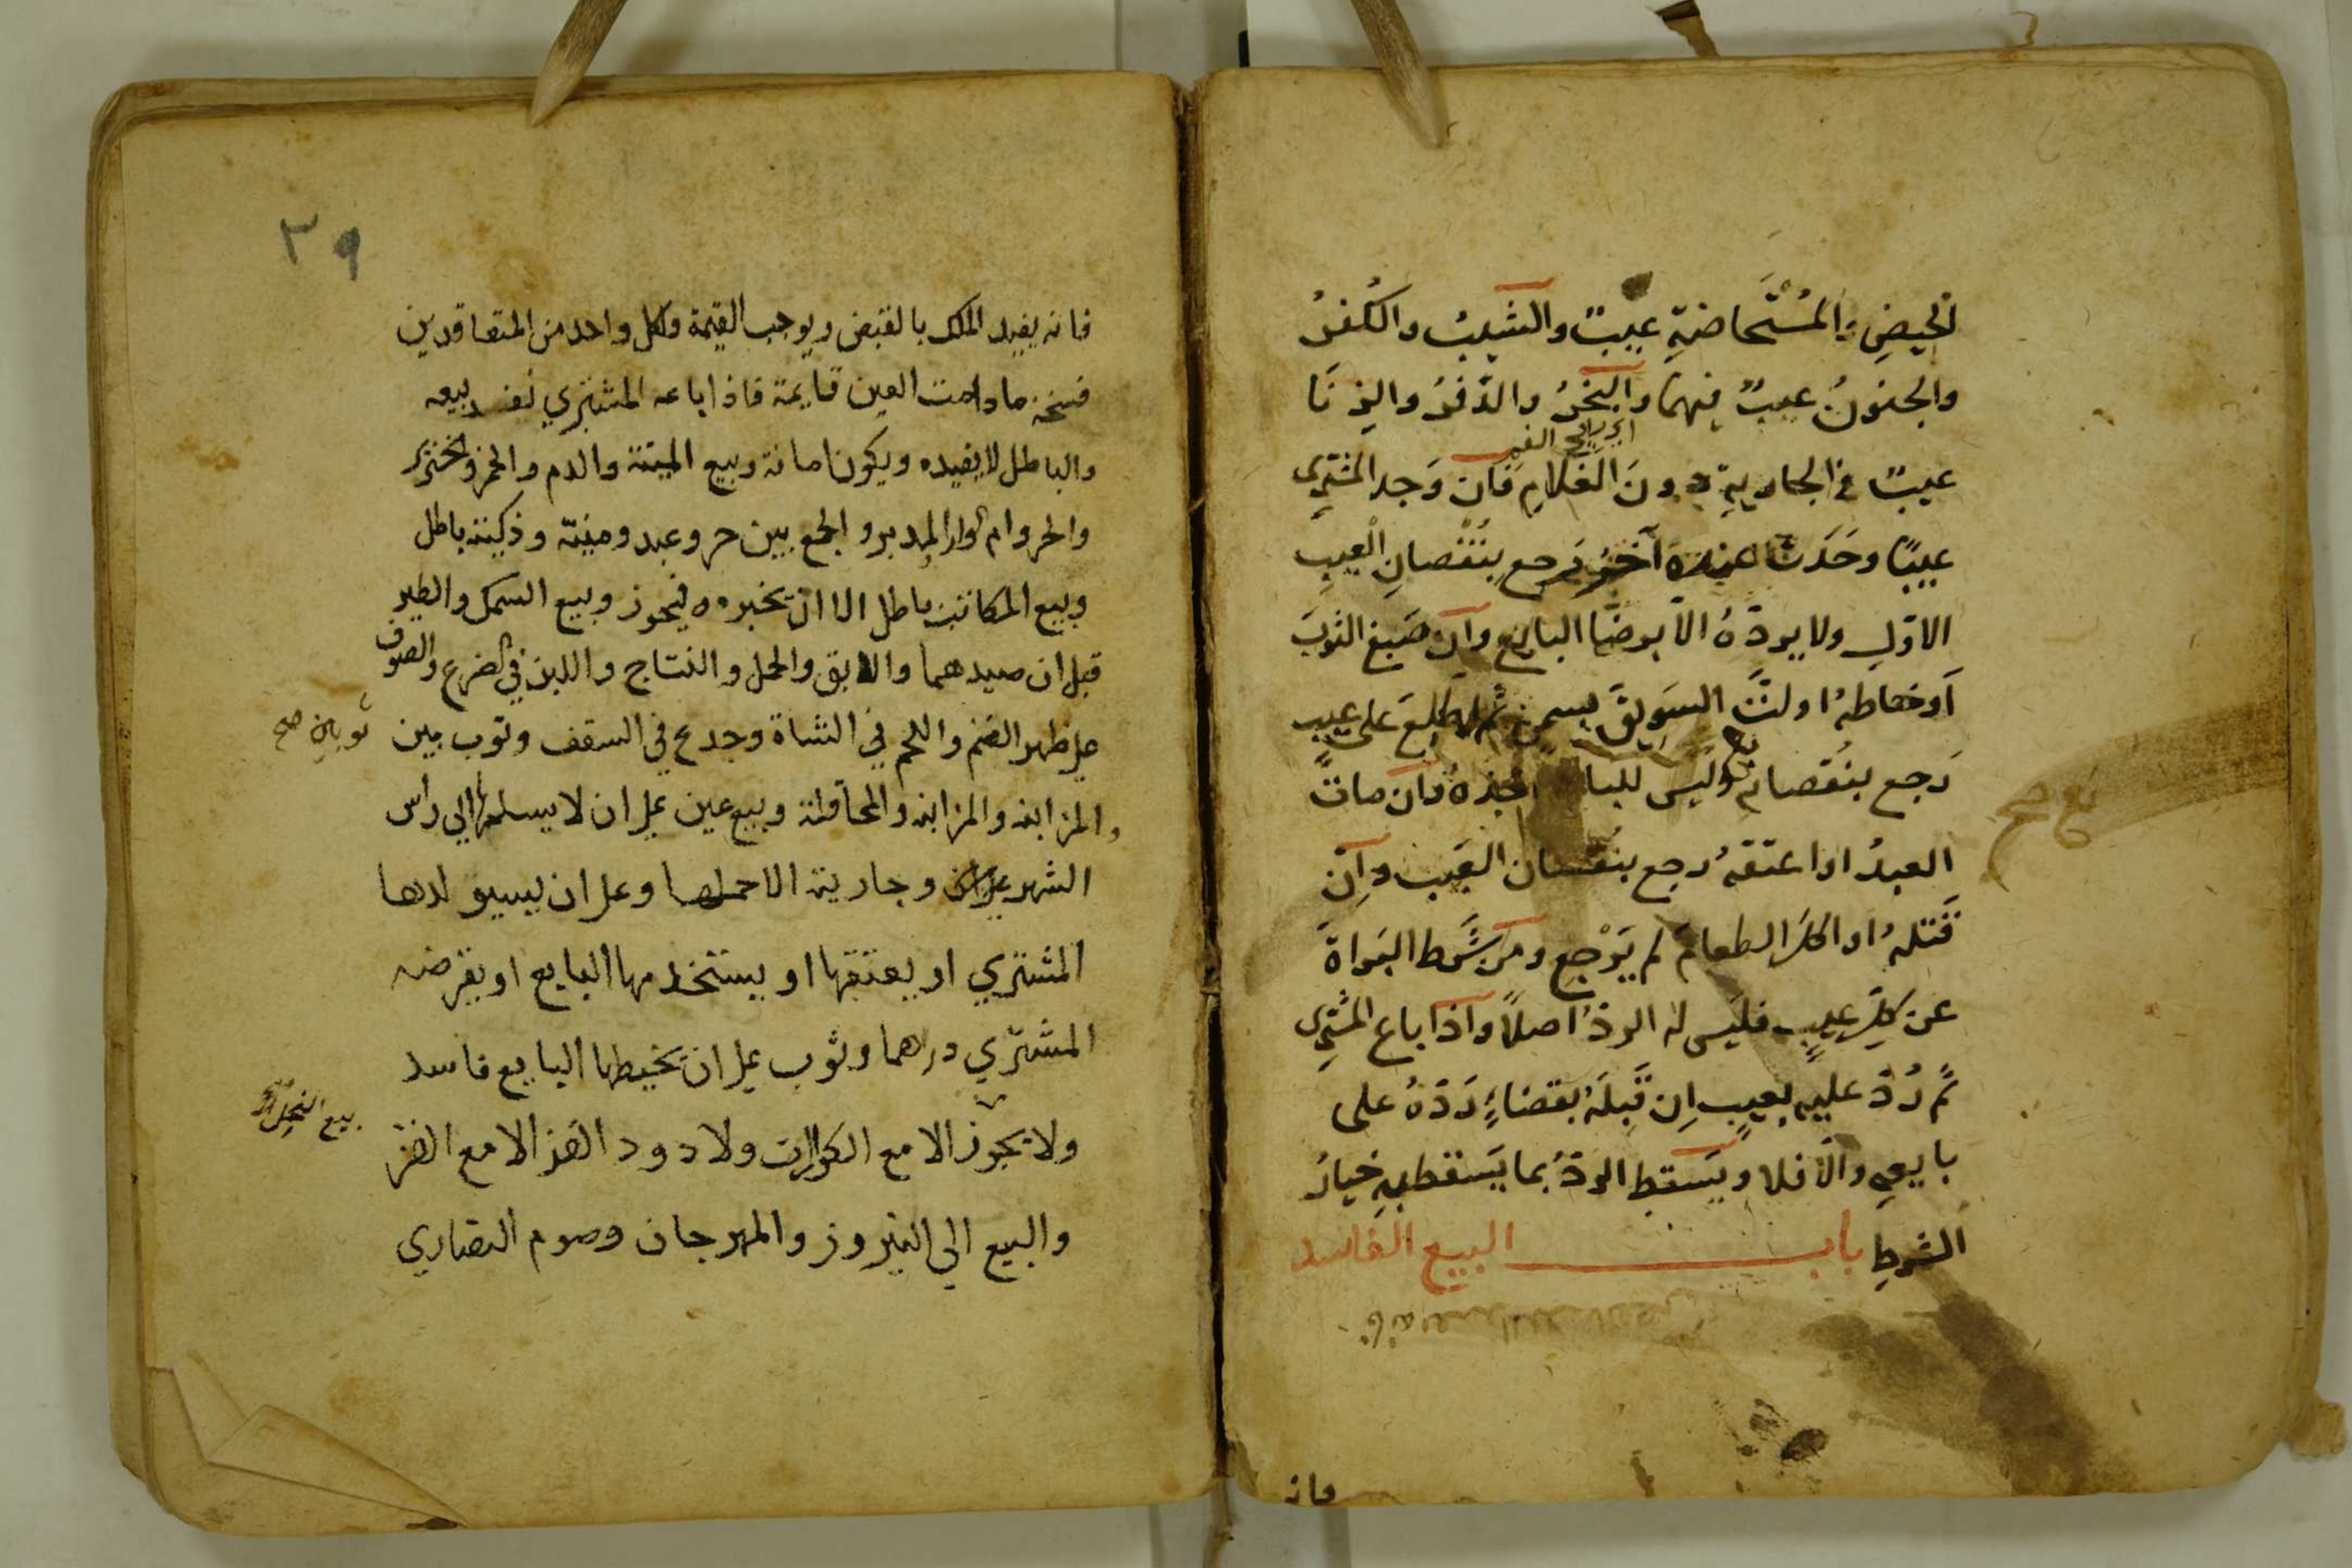 الحيضِ والمُسْتَحاضةِ عيبٌ والشيبُ والكُفرُ
والجنونُ عيبٌ فيهما والبَخَرُ والدَّفَرُ والزِنَا
اي ريح الفم
عيبٌ في الجاريةِ دونَ الغلامِ فان وَجد المشتري
عيبًا وحَدَث عنده آخر رجع بنُقْصانِ العيبِ
الاوّلِ ولا يردّهُ الا برضَا البايع وان صَبغ الثوبَ
اَو خاطهُ او لتَّ السَويقَ بسمنٍ ثم اطلعَ على عيب
رَجع بنُقصانه وليس للبايع اخذهُ وان ماتَ
بايع صح
العبدُ او اعتقهُ رجع بنقصان العَيب وان
قَتلهُ او اكلَ الطعامَ لم يَرْجع ومن شَرط البَراةَ
عن كلِّ عيبٍ فليس له الردُّ اصلاً واذا باع المشتري
ثم رُدّ عليه بعيب اِن قَبِلَهُ بقضاءٍ رَدّهُ على
بايعهِ والّا فلا ويَسقط الردُّ بما يَسقط بهِ خيارُ
الشرطِ باب البيع الفاسد
فانه
فانه يفيد الملك بالقبض ويوجب القيمة ولكل واحد من المتعاقدين
فسخه ما دامت العين قايمة فاذا باعه المشتري نفد بيعه
والباطل لا يفيده ويكون امانة وبيع الميتة والدم والخمر والخنزير
والحر وام الولد والمدبر والجمع بين حر وعبد وميتة وذكية باطل
وبيع المكاتب باطل الا ان تخبره فيجوز وبيع السمك والطير
قبل ان صيدهما والابق والحمل والنتاج واللبن في الضرع والصوف
على ظهر الغنم واللحم في الشاة وجدع في السقف وثوب بين ثوبين صح
والمزابنه والمزابنه والمحاقلة وبيع عين على ان لا يسلمها الي راس
الشهر وجارية الا حملها وعلى ان يستولدها
المشتري او يعتقها او يستخدمها البايع او يقرضه
المشتري درهما وثوب على ان يخيطها البايع فاسد
بيع النحل
ولا يجوز الا مع الكوارات ولا دود القز الا مع القز
والبيع الي النيروز والمهرجان وصوم النصاري
٣٩